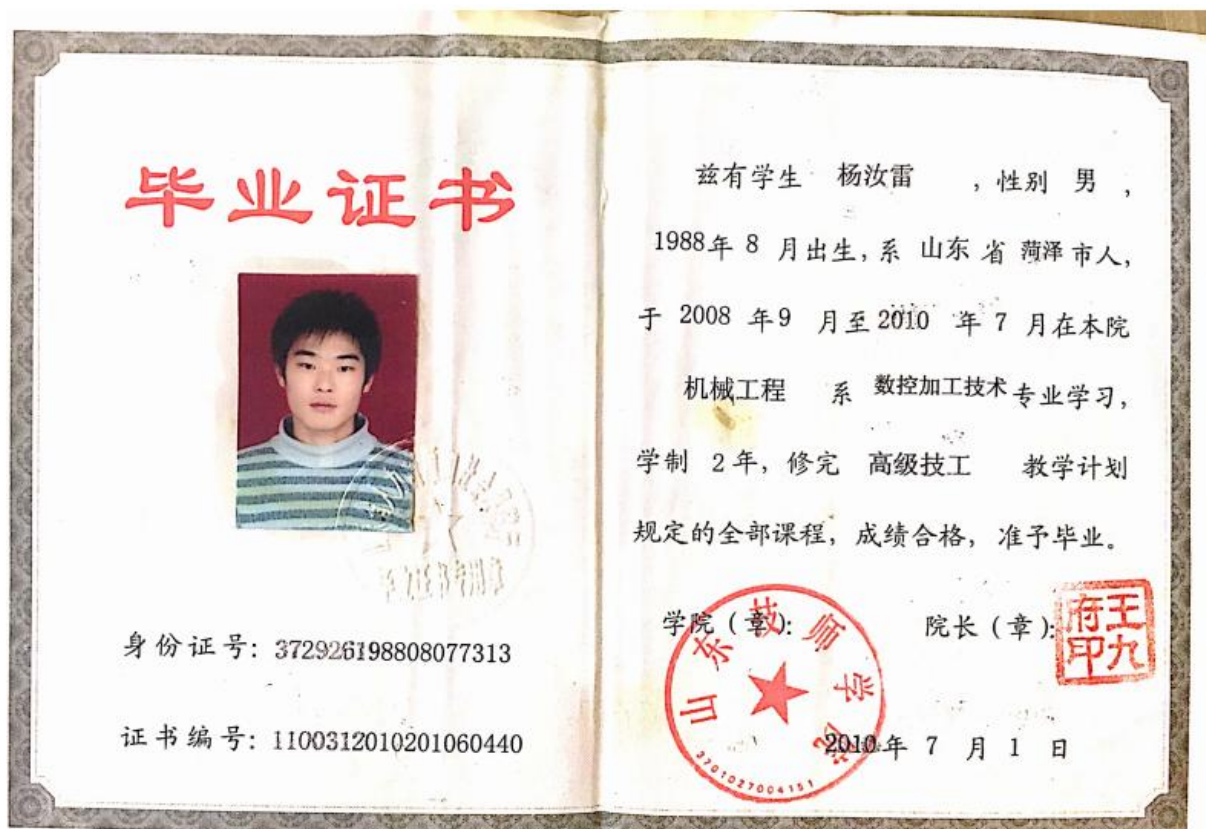 毕业证书
身份证号：372926198808077313
证书编号：1100312010201060440
兹有学生 杨汝雷 ，性别 男 ，
1988年 8 月出生，系 山东 省 菏泽 市人，
于 2008 年9 月至2010 年 7 月在本院
机械工程 系 数控加工技术 专业学习，
学制 2年，修完 高级技工 教学计划
规定的全部课程，成绩合格，准予毕业。
学院（章）： 院长（章）：
山东技师学院
3701027004151
王九府印
2010年 7 月 1 日